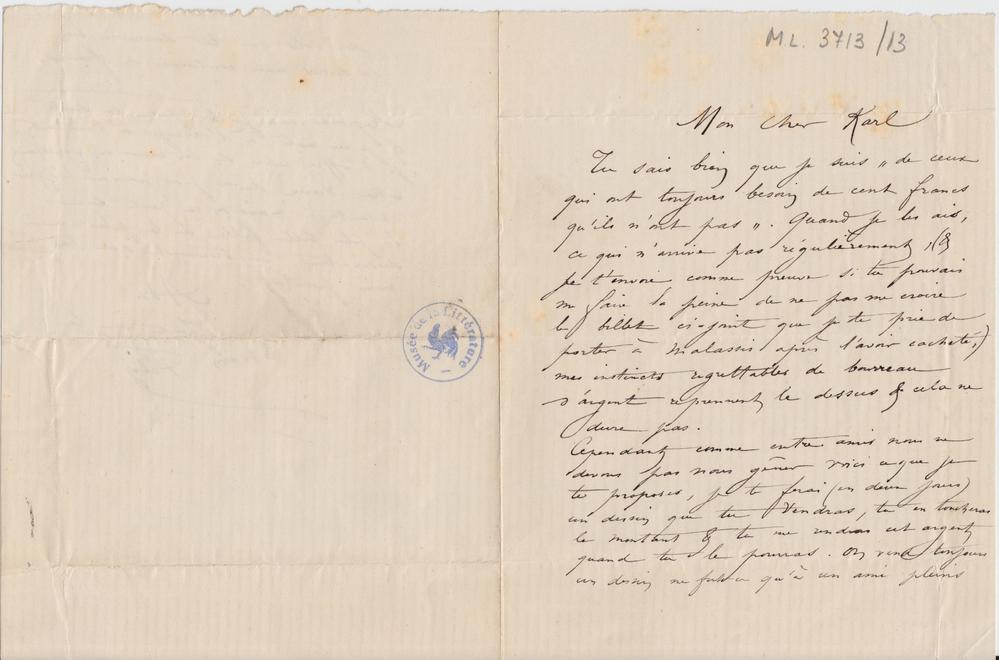 M.L. 3713/13
Mon cher Karl
Tu sais bien que je suis „ de ceux
qui ont toujours besoin de cent francs
qu'ils n'ont pas „. Quand je les ais,
ce qui n'arrive pas régulièrement, (&
je t'envoie comme preuve si tu pouvais
me faire la peine de ne pas me croire
le billet ci-joint que je te prie de
porter à Malassis après l'avoir cacheté,)
mes instincts regrettables de bourreau
d'argent reprennent le dessus & cela ne
dure pas.
Cependant comme entre amis nous ne
devons pas nous gêner voici ce que je
te proposes, je te ferai (en deux jours)
un dessin que tu vendras, tu en toucheras
le montant & tu me rendras cet argent
quand tu le pourras. On vend toujours
un dessin ne fut-ce qu'à un ami pleins
Musée de la Littérature